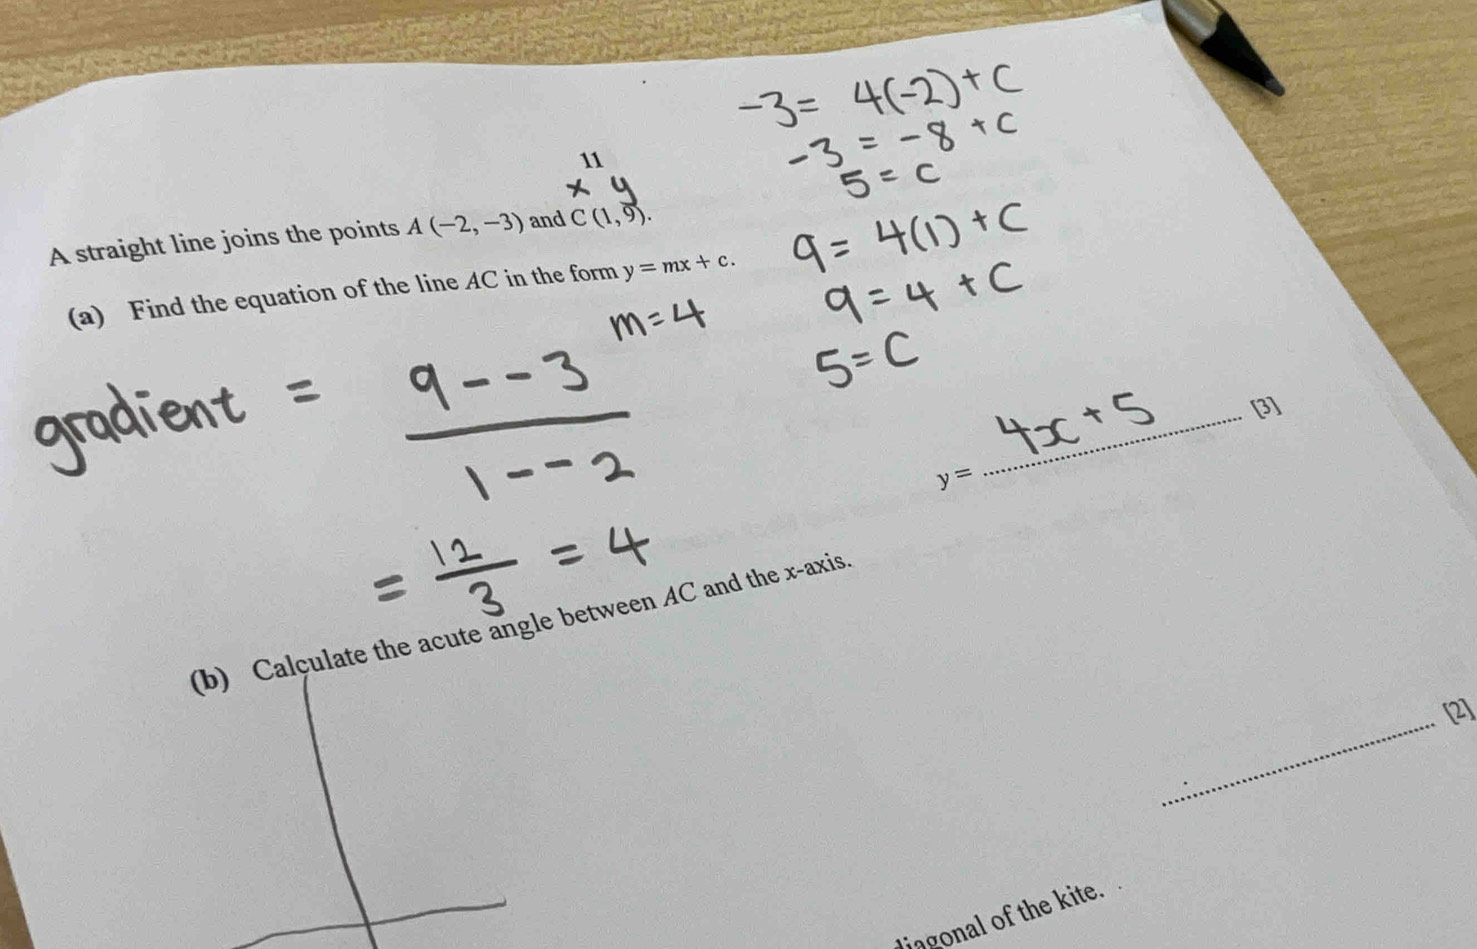 -3 = 4(-2) + C
-3 = -8 + C
5 = C
11
x y
A straight line joins the points A (−2, −3) and C (1, 9).
9 = 4(1) + C
(a) Find the equation of the line AC in the form y = mx + c.
9 = 4 + C
m = 4
5 = C
gradient = 9 - - 3
1 - - 2
y = 4x + 5 [3]
= 12/3 = 4
(b) Calculate the acute angle between AC and the x-axis.
[2]
diagonal of the kite.